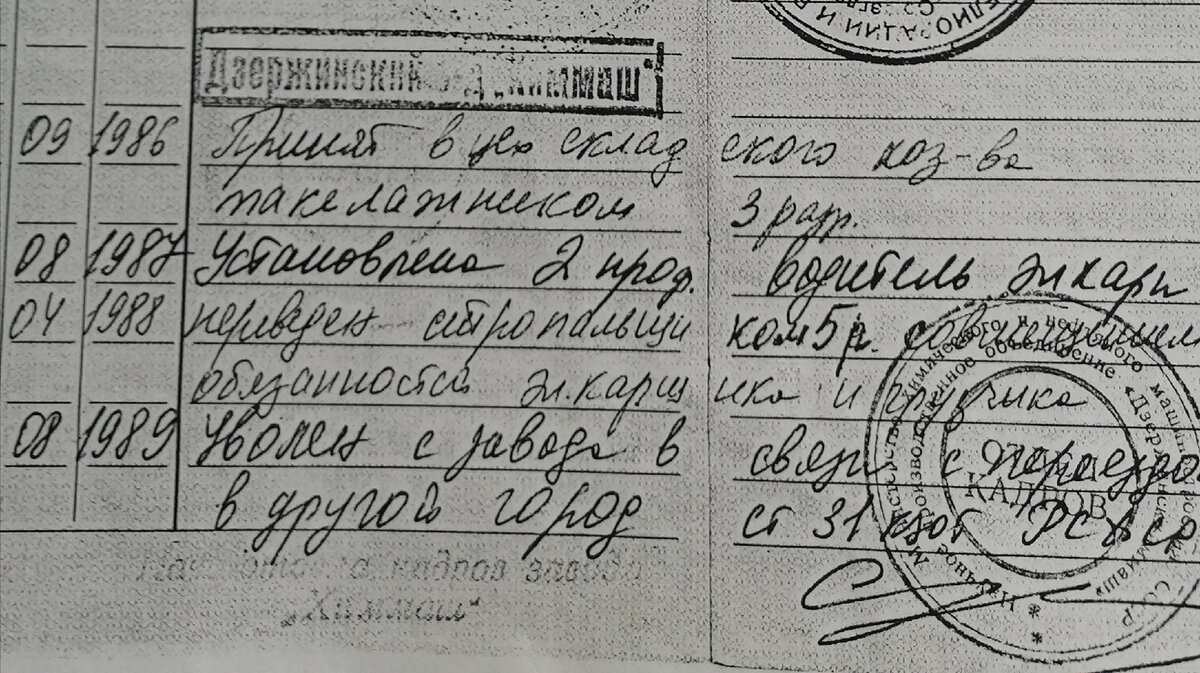 Дзержинский з-д „Химмаш"
09 1986 Принят в цех складского хоз-ва
такелажником 3 разр.
08 1987 Установлена 2 проф. водитель эл.кары
04 1988 переведен стропальщиком 5 р. с совмещением
обязанностей эл.карщика и грузчика
08 1989 Уволен с завода в связи с переездом
в другой город ст 31 КЗОТ РСФСР
Нач. отдела кадров завода
„Химмаш"
ОТДЕЛ
КАДРОВ